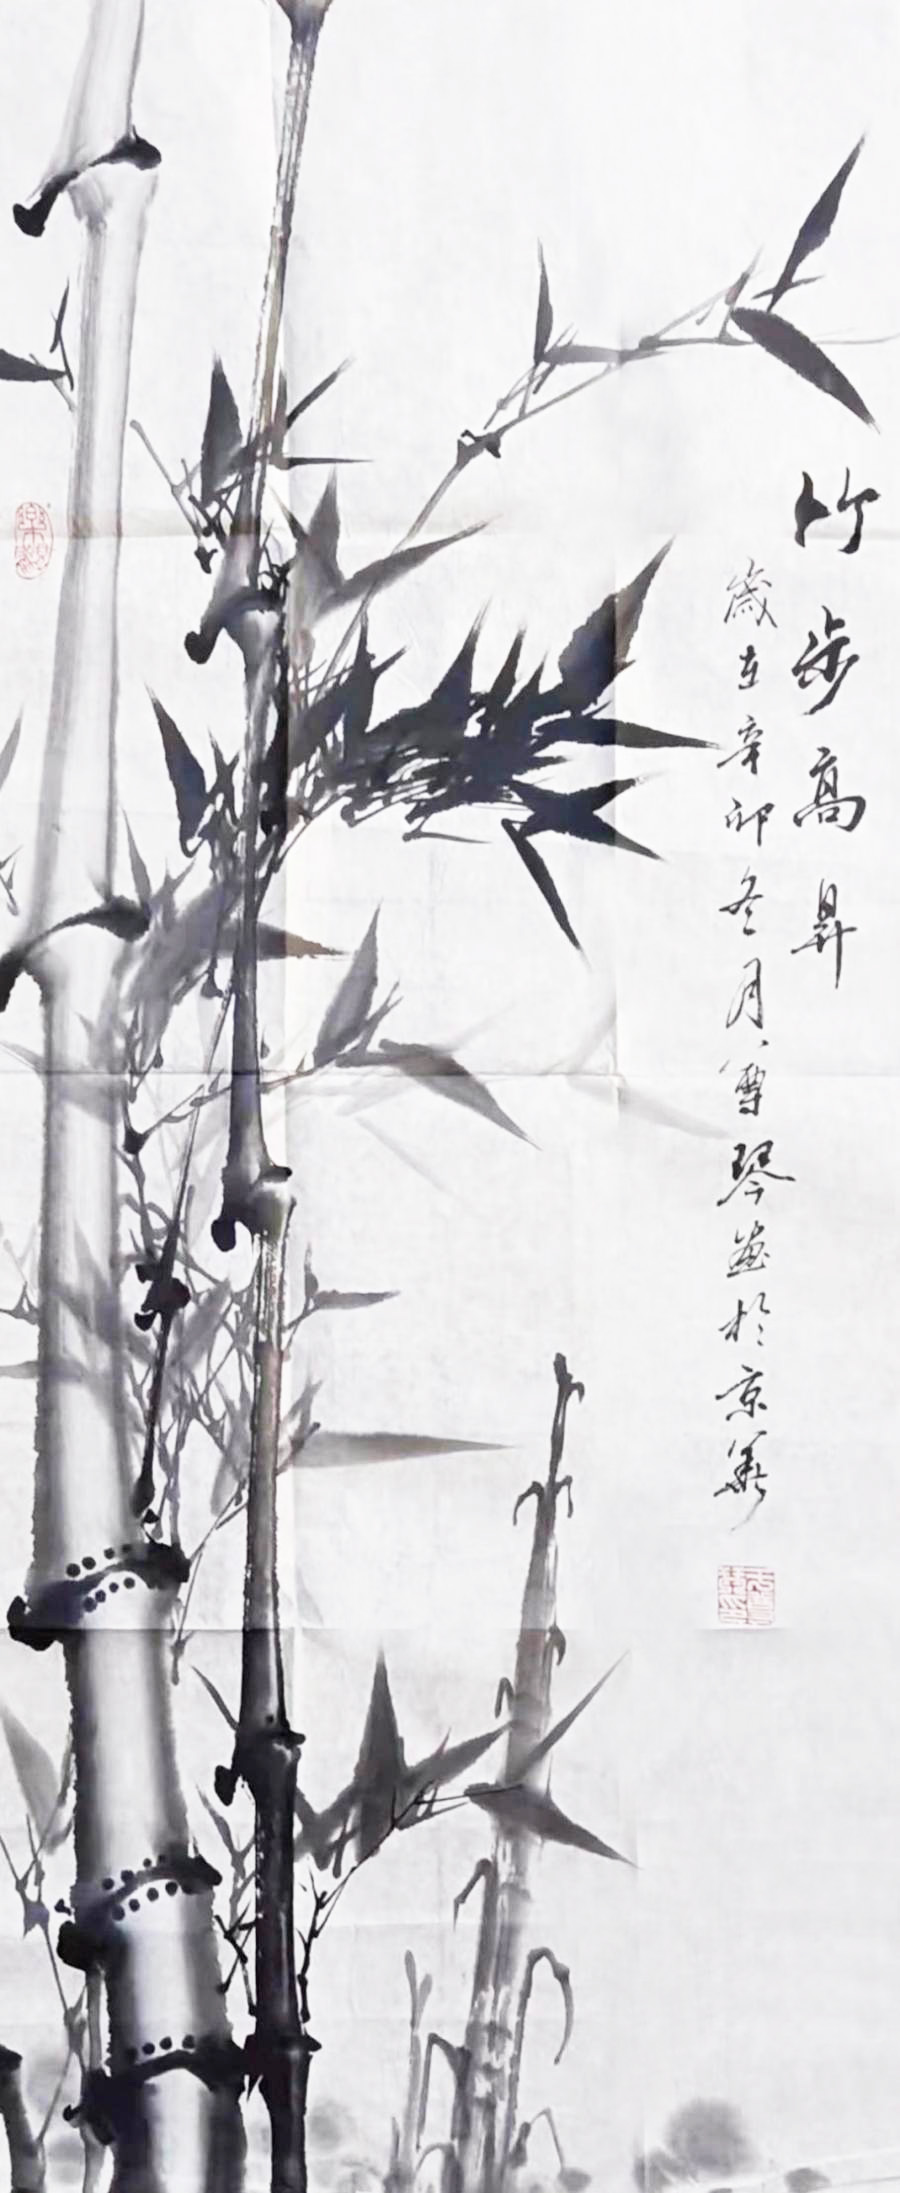 竹步高昇
歲在辛卯冬月雪琴畫於京華